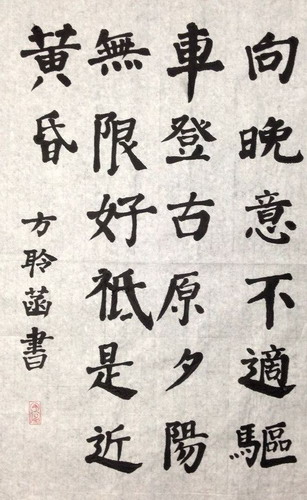 向晚意不適驅
車登古原夕陽
無限好祗是近
黃昏
方聆菡書